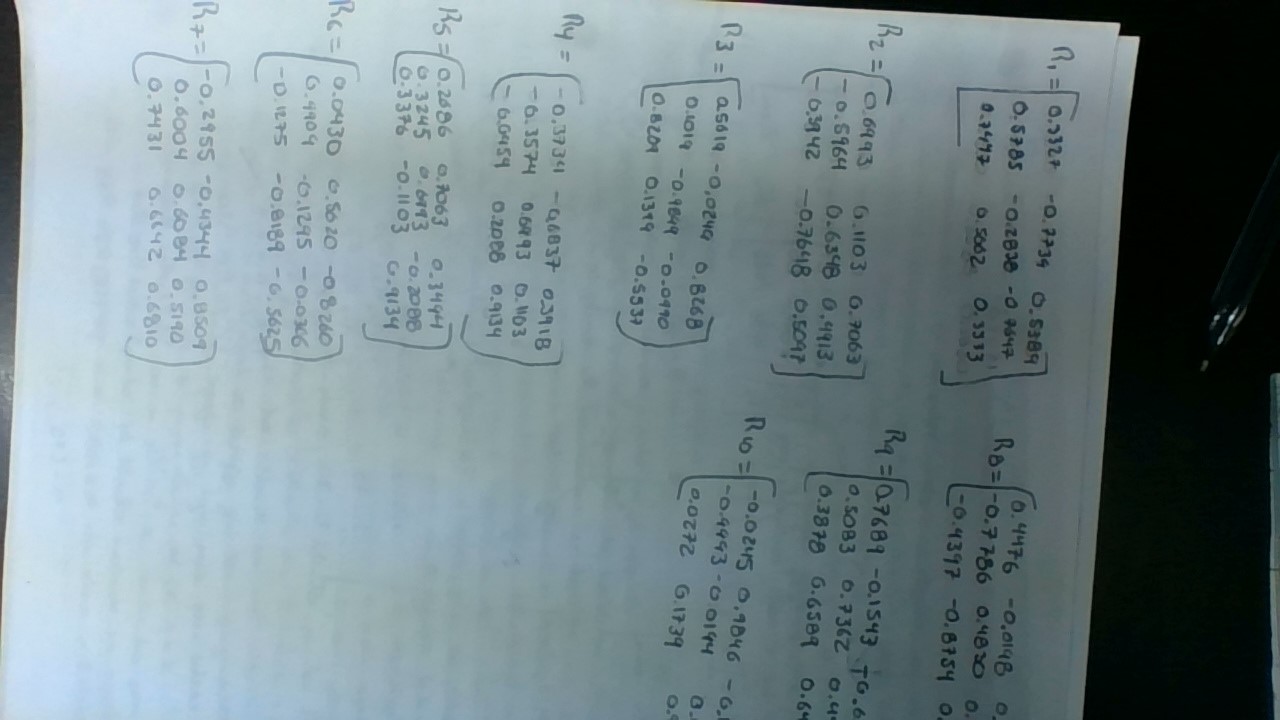 R1 = 0.3327 -0.7734 0.5389
0.5785 -0.2820 -0.7647
0.7447 0.5002 0.3333
R2 = 0.6943 0.1103 0.7063
-0.5964 0.6348 0.4413
-0.3942 -0.7648 0.5047
R3 = 0.5619 -0.0249 0.8268
0.1019 -0.9849 -0.0990
0.8209 0.1399 -0.5537
R4 = -0.3734 -0.6837 0.3918
-0.3574 0.6493 0.1103
-0.0454 0.2088 0.9134
R5 = 0.2686 0.7063 0.3444
0.3245 0.6493 -0.2088
0.3376 -0.1103 0.9134
R6 = 0.0430 0.5620 -0.8260
0.4904 -0.1295 -0.0306
-0.1275 -0.8189 -0.5625
R7 = -0.2955 -0.4344 0.8509
0.6004 0.6084 0.5190
0.7431 0.6642 0.6810
R8 = 0.4476 -0.0148 0.
-0.7786 0.4820 0.
-0.4397 -0.8754 0.
R9 = 0.7689 -0.1543 -0.6
0.5083 0.7362 0.4
0.3878 0.6589 0.64
R10 = -0.0245 0.9846 -0.
-0.4443 -0.0144 0.
0.0272 0.1739 0.9